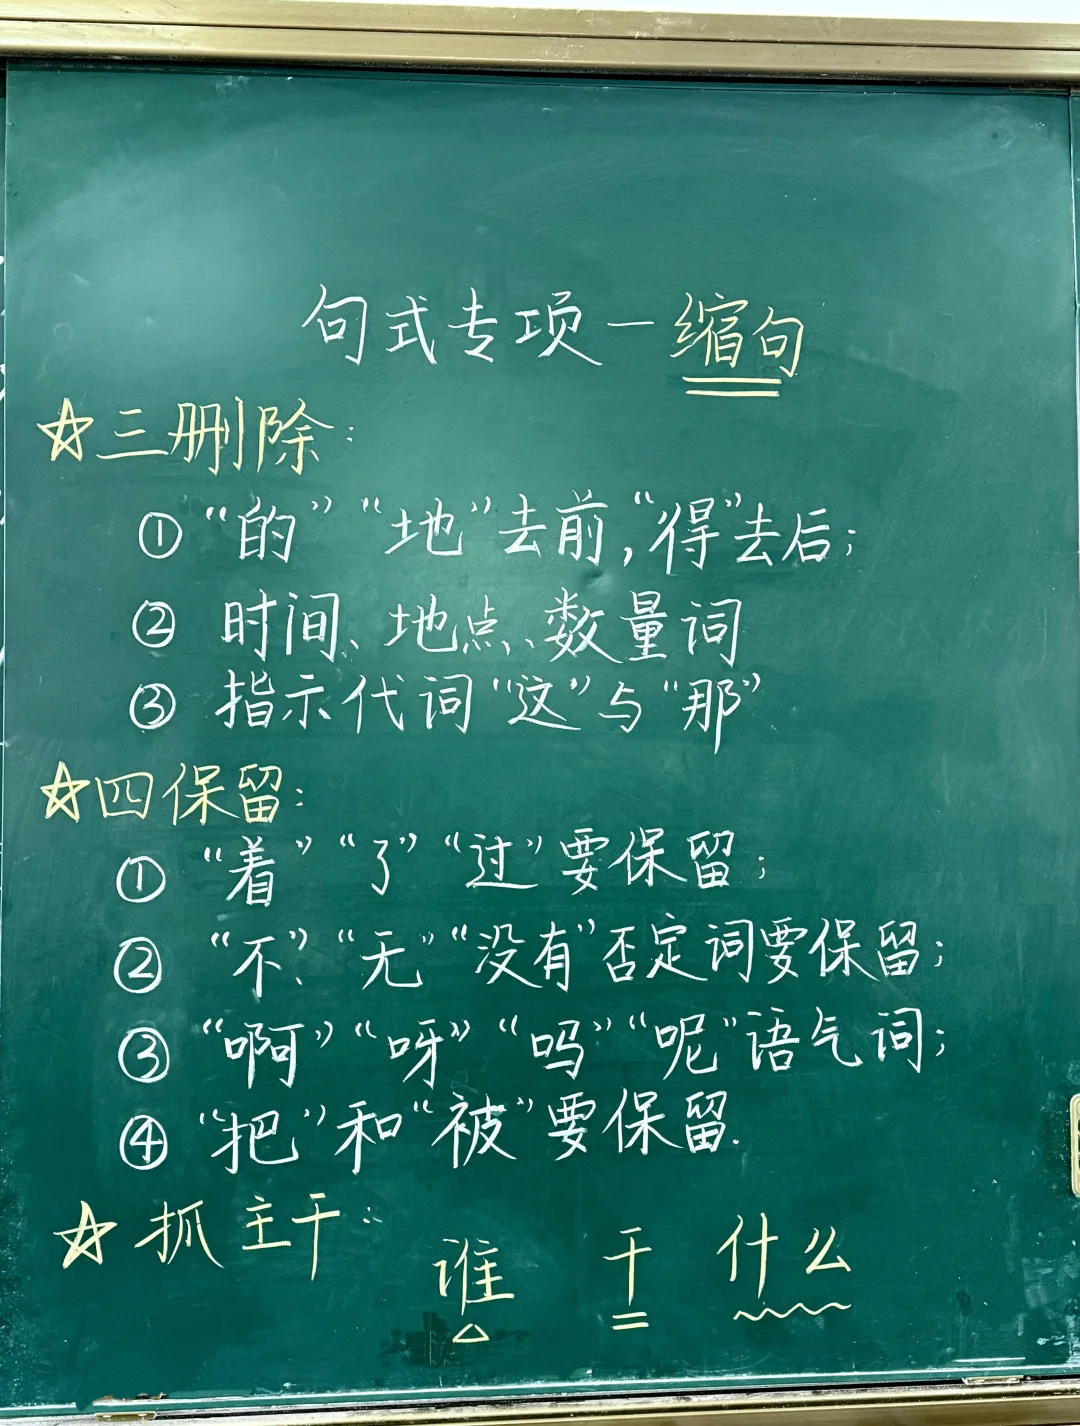 句式专项—缩句
☆三删除:
①“的”“地”去前,“得”去后;
②时间、地点、数量词
③指示代词“这”与“那”
☆四保留:
①“着”“了”“过”要保留;
②“不”、“无”“没有”否定词要保留;
③“啊”“呀”“吗”“呢”语气词;
④“把”和“被”要保留.
☆抓主干:
谁 干 什么